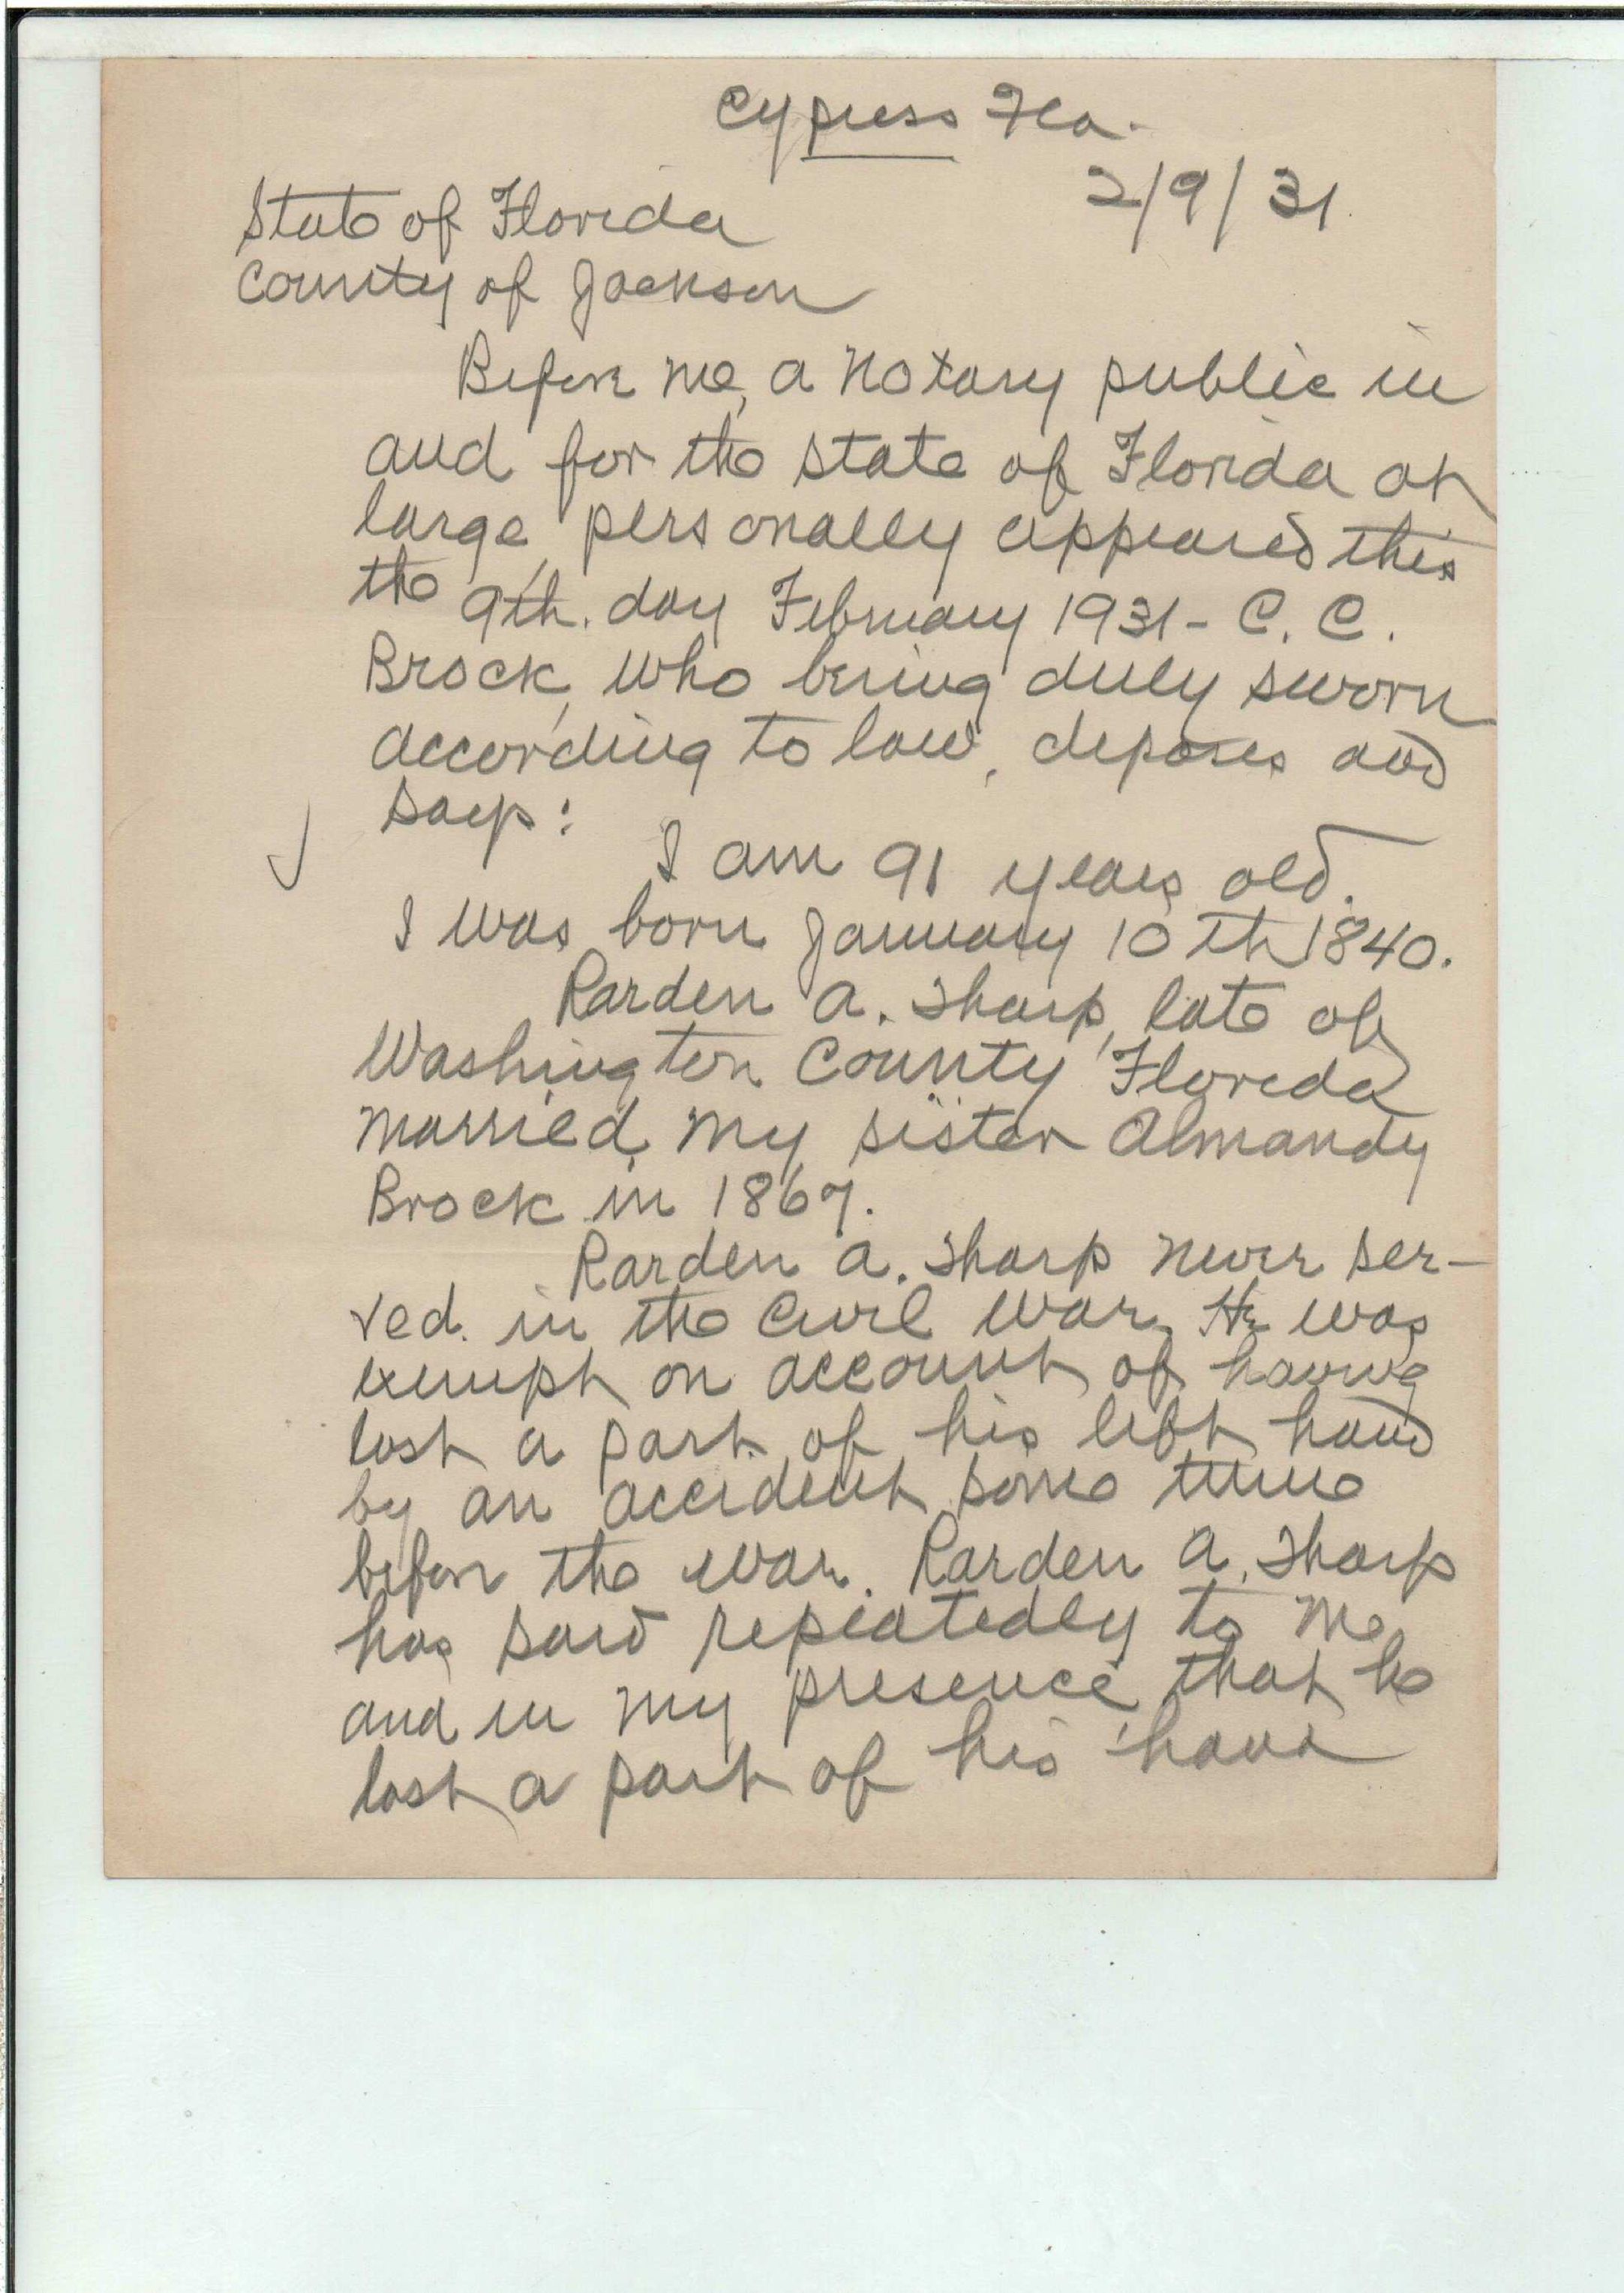 Cypress Fla.
2/9/31
State of Florida
County of Jackson
Before me, a Notary public in
and for the state of Florida at
large, personally appeared this
the 9th. day February 1931 - C. C.
Brock, who being duly sworn
according to law, deposes and
says:
I am 91 years old.
I was born January 10th 1840.
Rarden A. Sharp, late of
Washington County, Florida
married my sister Almandy
Brock in 1867.
Rarden A. Sharp never ser-
ved in the Civil War. He was
exempt on account of having
lost a part of his left hand
by an accident some time
before the war. Rarden A. Sharp
has said repeatedly to me
and in my presence, that he
lost a part of his hand